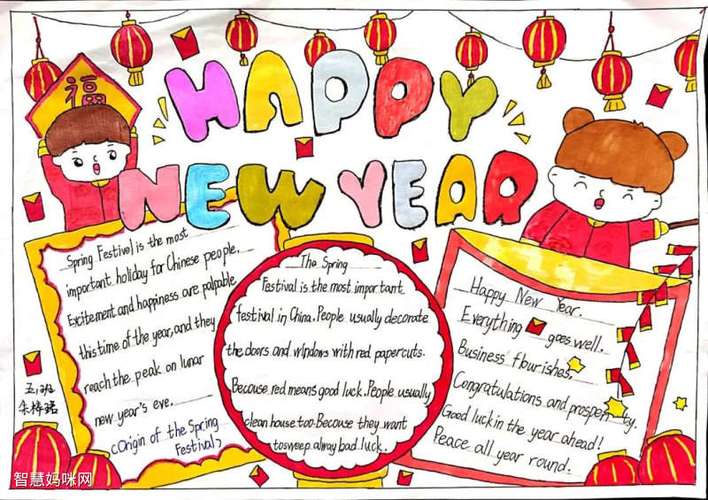 福
HAPPY
NEW YEAR
Spring Festivel is the most
important holiday for Chinese people.
Excitement and happiness are palpable
this time of the year, and they
reach the peak on lunar
new year's eve.
(Origin of the Spring
Festival)
The Spring
Festival is the most important
festival in China. People usually decorate
the doors and windows with red papercuts.
Because red means good luck. People usually
clean house too. Because they want
tosweep alway bad luck.
Happy New Year.
Everything goes well.
Business flourishes,
Congratulations and prosperity.
Good luck in the year ahead!
Peace all year round.
智慧妈咪网